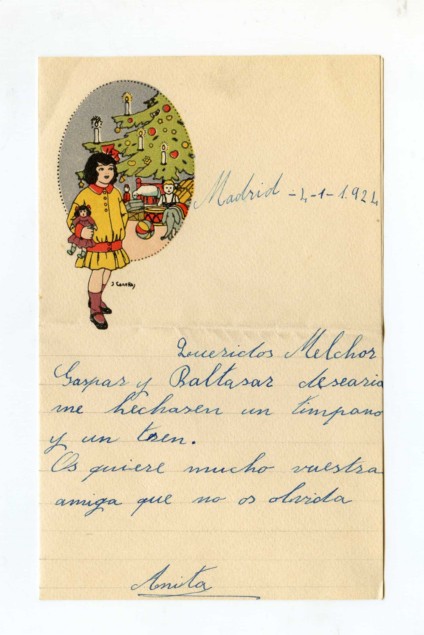 Madrid - 4-1-1.924
Queridos Melchor
Gaspar y Baltasar desearia
me hechasen un timpano
y un tren.
Os quiere mucho vuestra
amiga que no os olvida
Anita